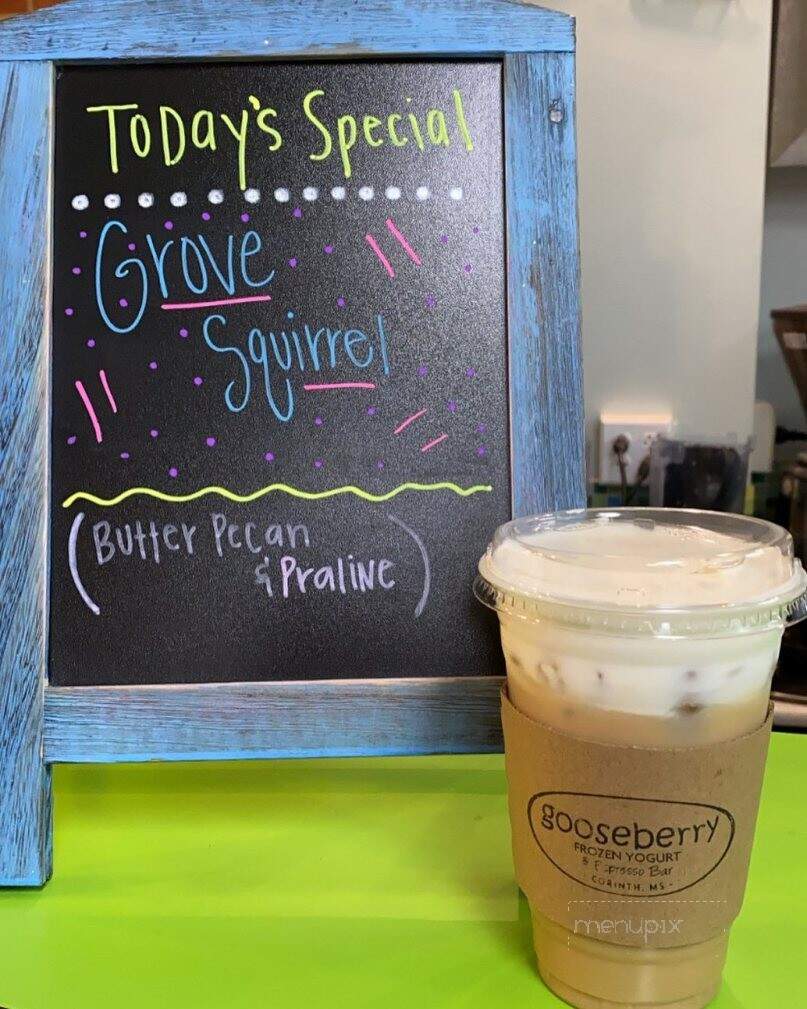 Today's Special
Grove
Squirrel
(Butter Pecan
& Praline)
gooseberry
FROZEN YOGURT
& Espresso Bar
CORINTH, MS
menupix